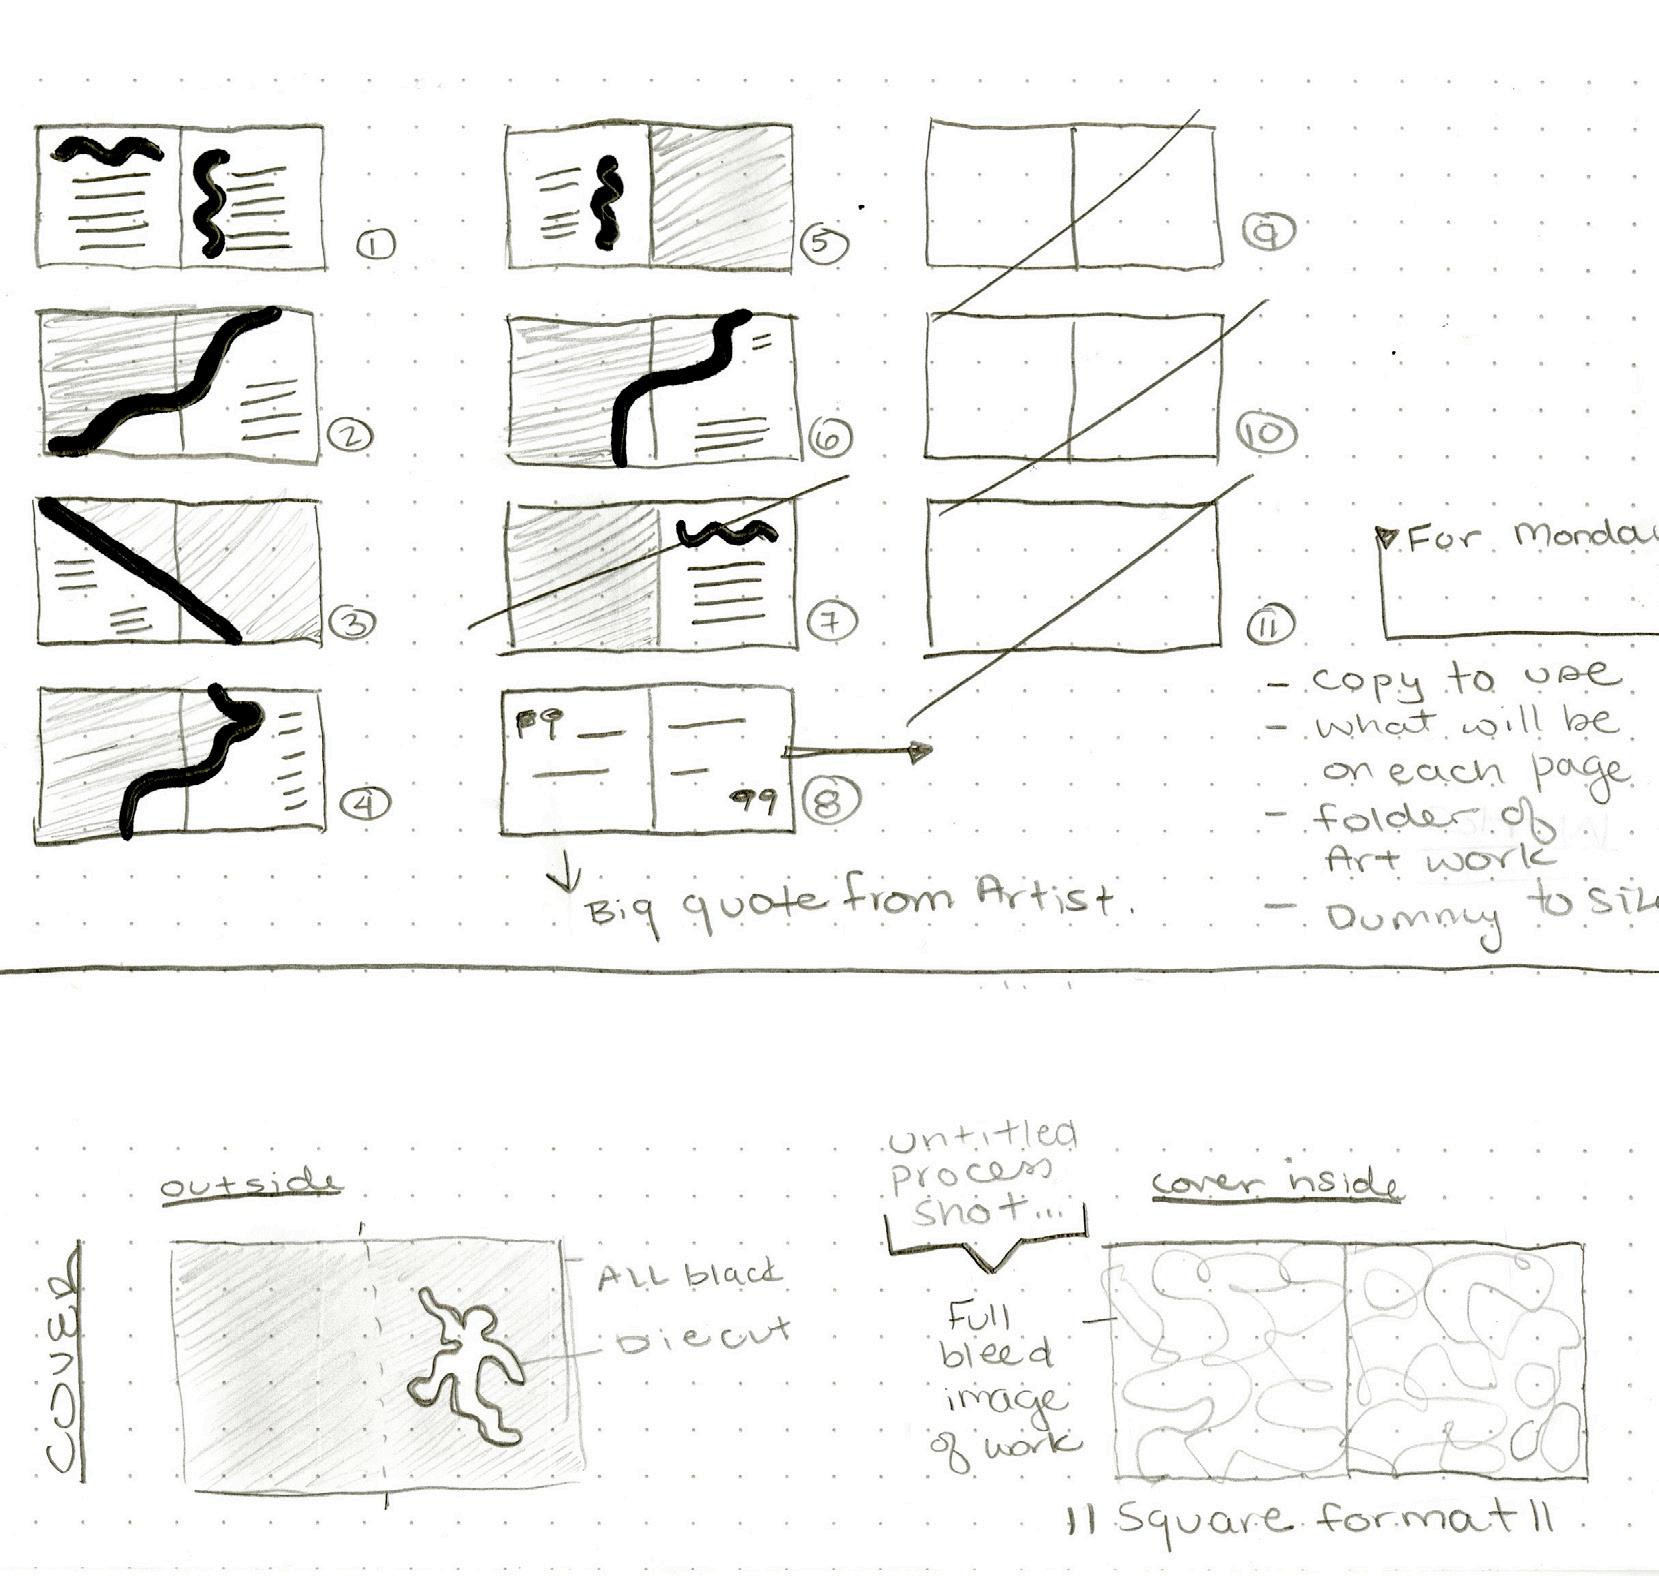 1
5
9
2
6
10
3
7
11
4
8
For Monday
- copy to use
- what will be
on each page
- folder of
Art work
- Dummy to Siz
Big quote from Artist.
COVER
outside
ALL black
Die cut
untitled
process
shot...
Full
bleed
image
of work
cover inside
11 Square format 11